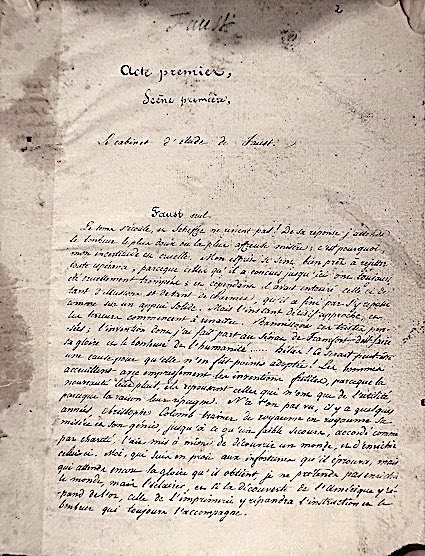 2
Faust
Acte premier,
Scène première,
Le cabinet d'étude de Faust.
Faust seul.
Le tems s'écoule, et Scheffer ne vient pas! De sa réponse j'attends
le bonheur le plus doux ou la plus affreuse misère; c'est pourquoi
mon incertitude est cruelle. Mon esprit se sent bien prêt à rejeter
toute espérance, parceque celles qu'il a concues jusqu'ici ont toujours
été cruellement trompées; et cependant l'avait entouré celle ci de
tant d'illusions et de tant de charmes, qu'il a fini par s'y reposer
comme sur un appui solide. Mais l'instant décisif approche, et
les terreurs commencent à renaître. Bannissons ces tristes pen-
sées; l'invention dont j'ai fait part au Sénat de Francfort doit faire
sa gloire et le bonheur de l'humanité...... Hélas! Ce serait peut-être
une cause pour qu'elle n'en fut point adoptée! Les hommes
accueillent avec empressement les inventions futiles, parceque la
nouveauté leur plait, ils repoussent celles qui n'ont que de l'utilité
parceque la raison leur répugne. N'a t'on pas vu, il y a quelques
années, Christophe Colomb traîner de royaume en royaume sa
misère et son génie, jusqu'à ce qu'un faible secours, accordé comme
par charité, l'aie mis à même de découvrir un monde, et d'enrichir
celui ci. Moi, qui suis en proie aux infortunes qu'il éprouva, mais
qui attends encore la gloire qu'il obtint, je ne prétends pas enrichir
le monde, mais l'éclairer, et si la découverte de l'Amérique y ré-
pand de l'or, celle de l'imprimerie y répandra l'instruction et le
bonheur qui toujours l'accompagne.